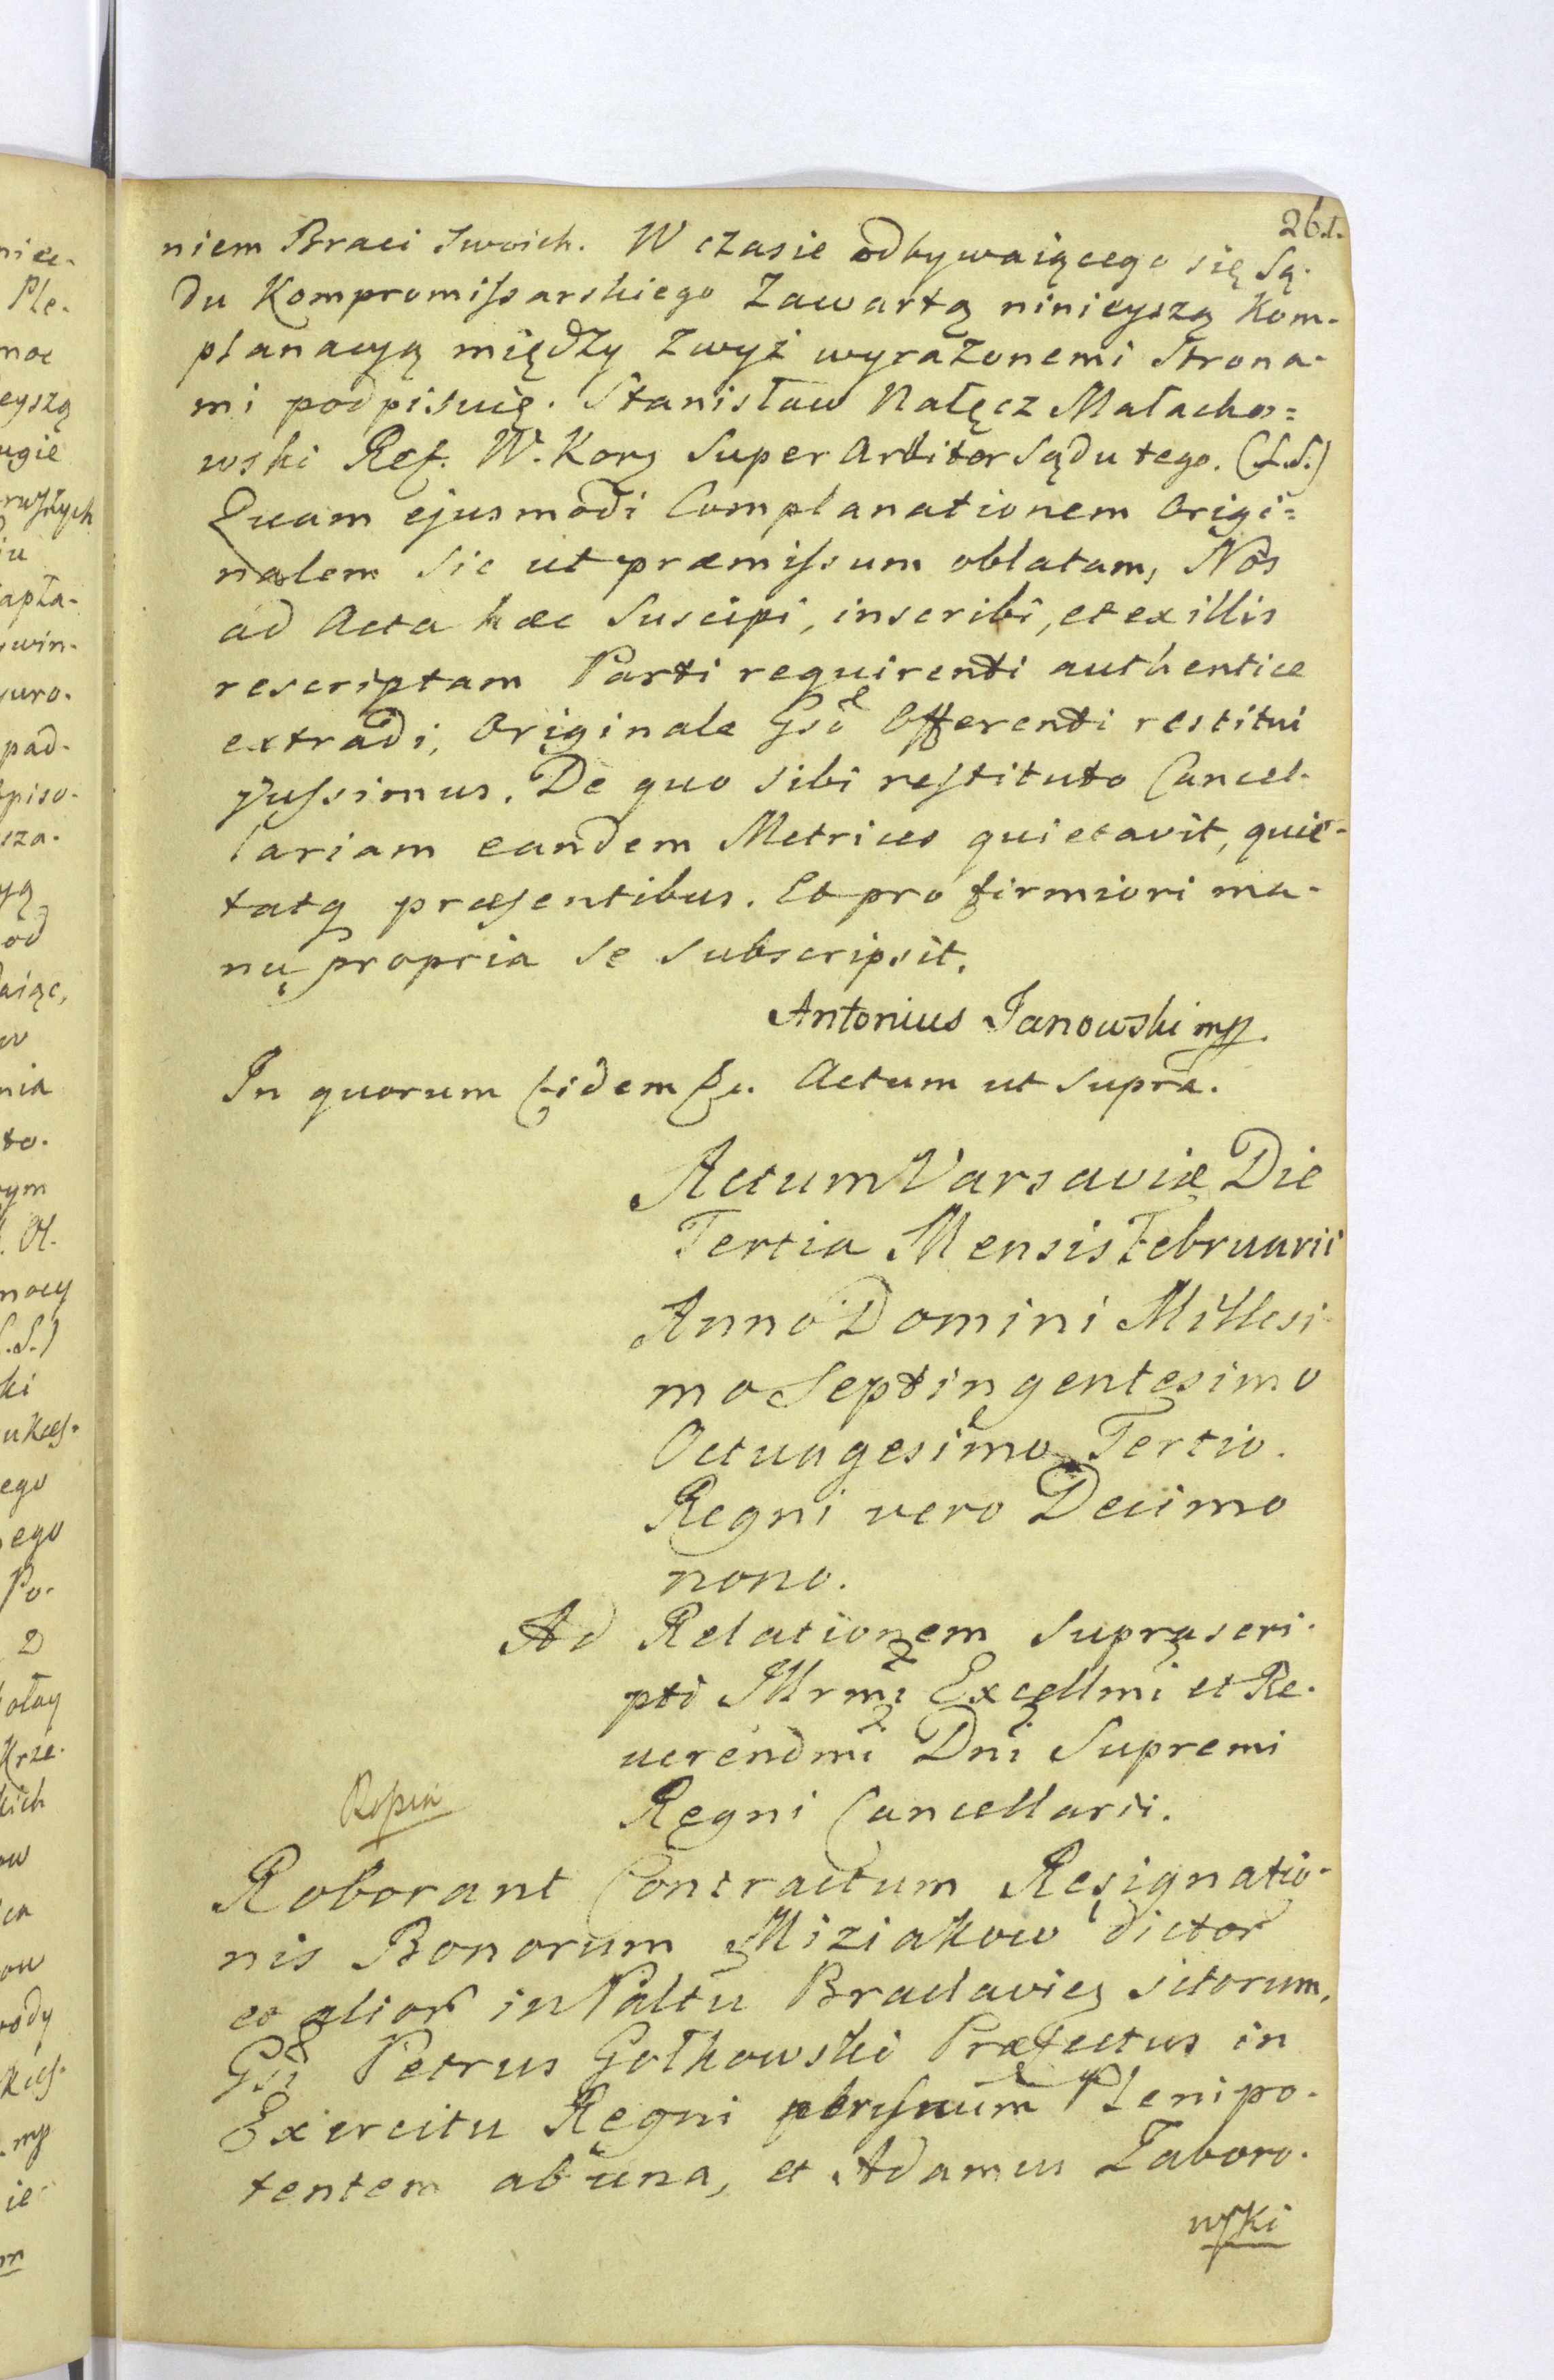 261.
niem Braci Swoich. W czasie odbywaiącego się Są-
du Kompromissarskiego Zawartą ninieyszą Kom-
planacyą między Zwyż wyrażonemi Strona-
mi podpisuię. Stanisław Nałęcz Małacho=
wski Ref. W. Kory Super Arbiter Sądu tego. (L.S.)
Quam ejusmodi Complanationem Origi=
nalem Sic ut præmissum oblatam, Nos
ad Acta hæc Suscipi, inscribi, et ex illis
rescriptam Parti requirenti authentice
extradi, Originale Gso Offerenti restitui
jussimus. De quo sibi restituto Cancel-
lariam eandem Metrices quietavit, quie-
tatq præsentibus. Et pro firmiori ma-
nu propria se subscripsit.
Antonius Janowski mp.
In quorum fidem &c. Actum ut Supra.
Actum Varsaviæ Die
Tertia Mensis Februarii
Anno Domini Millesi-
mo Septingentesimo
Octuagesimo Tertio.
Regni vero Decimo
nono.
Ad Relationem Suprascri-
pti Illrmi Excellmi et Re-
verendmi Dni Supremi
Regni Cancellarii.
Roborant Contractum Resignatio-
nis Bonorum Miziakow dictor
et alior in Paltu Braclavien sitorum,
Gsi Petrus Gołkowski Præfectus in
Exercitu Regni Plenipo-
tentem ab una, et Adamus Zaboro-
wski